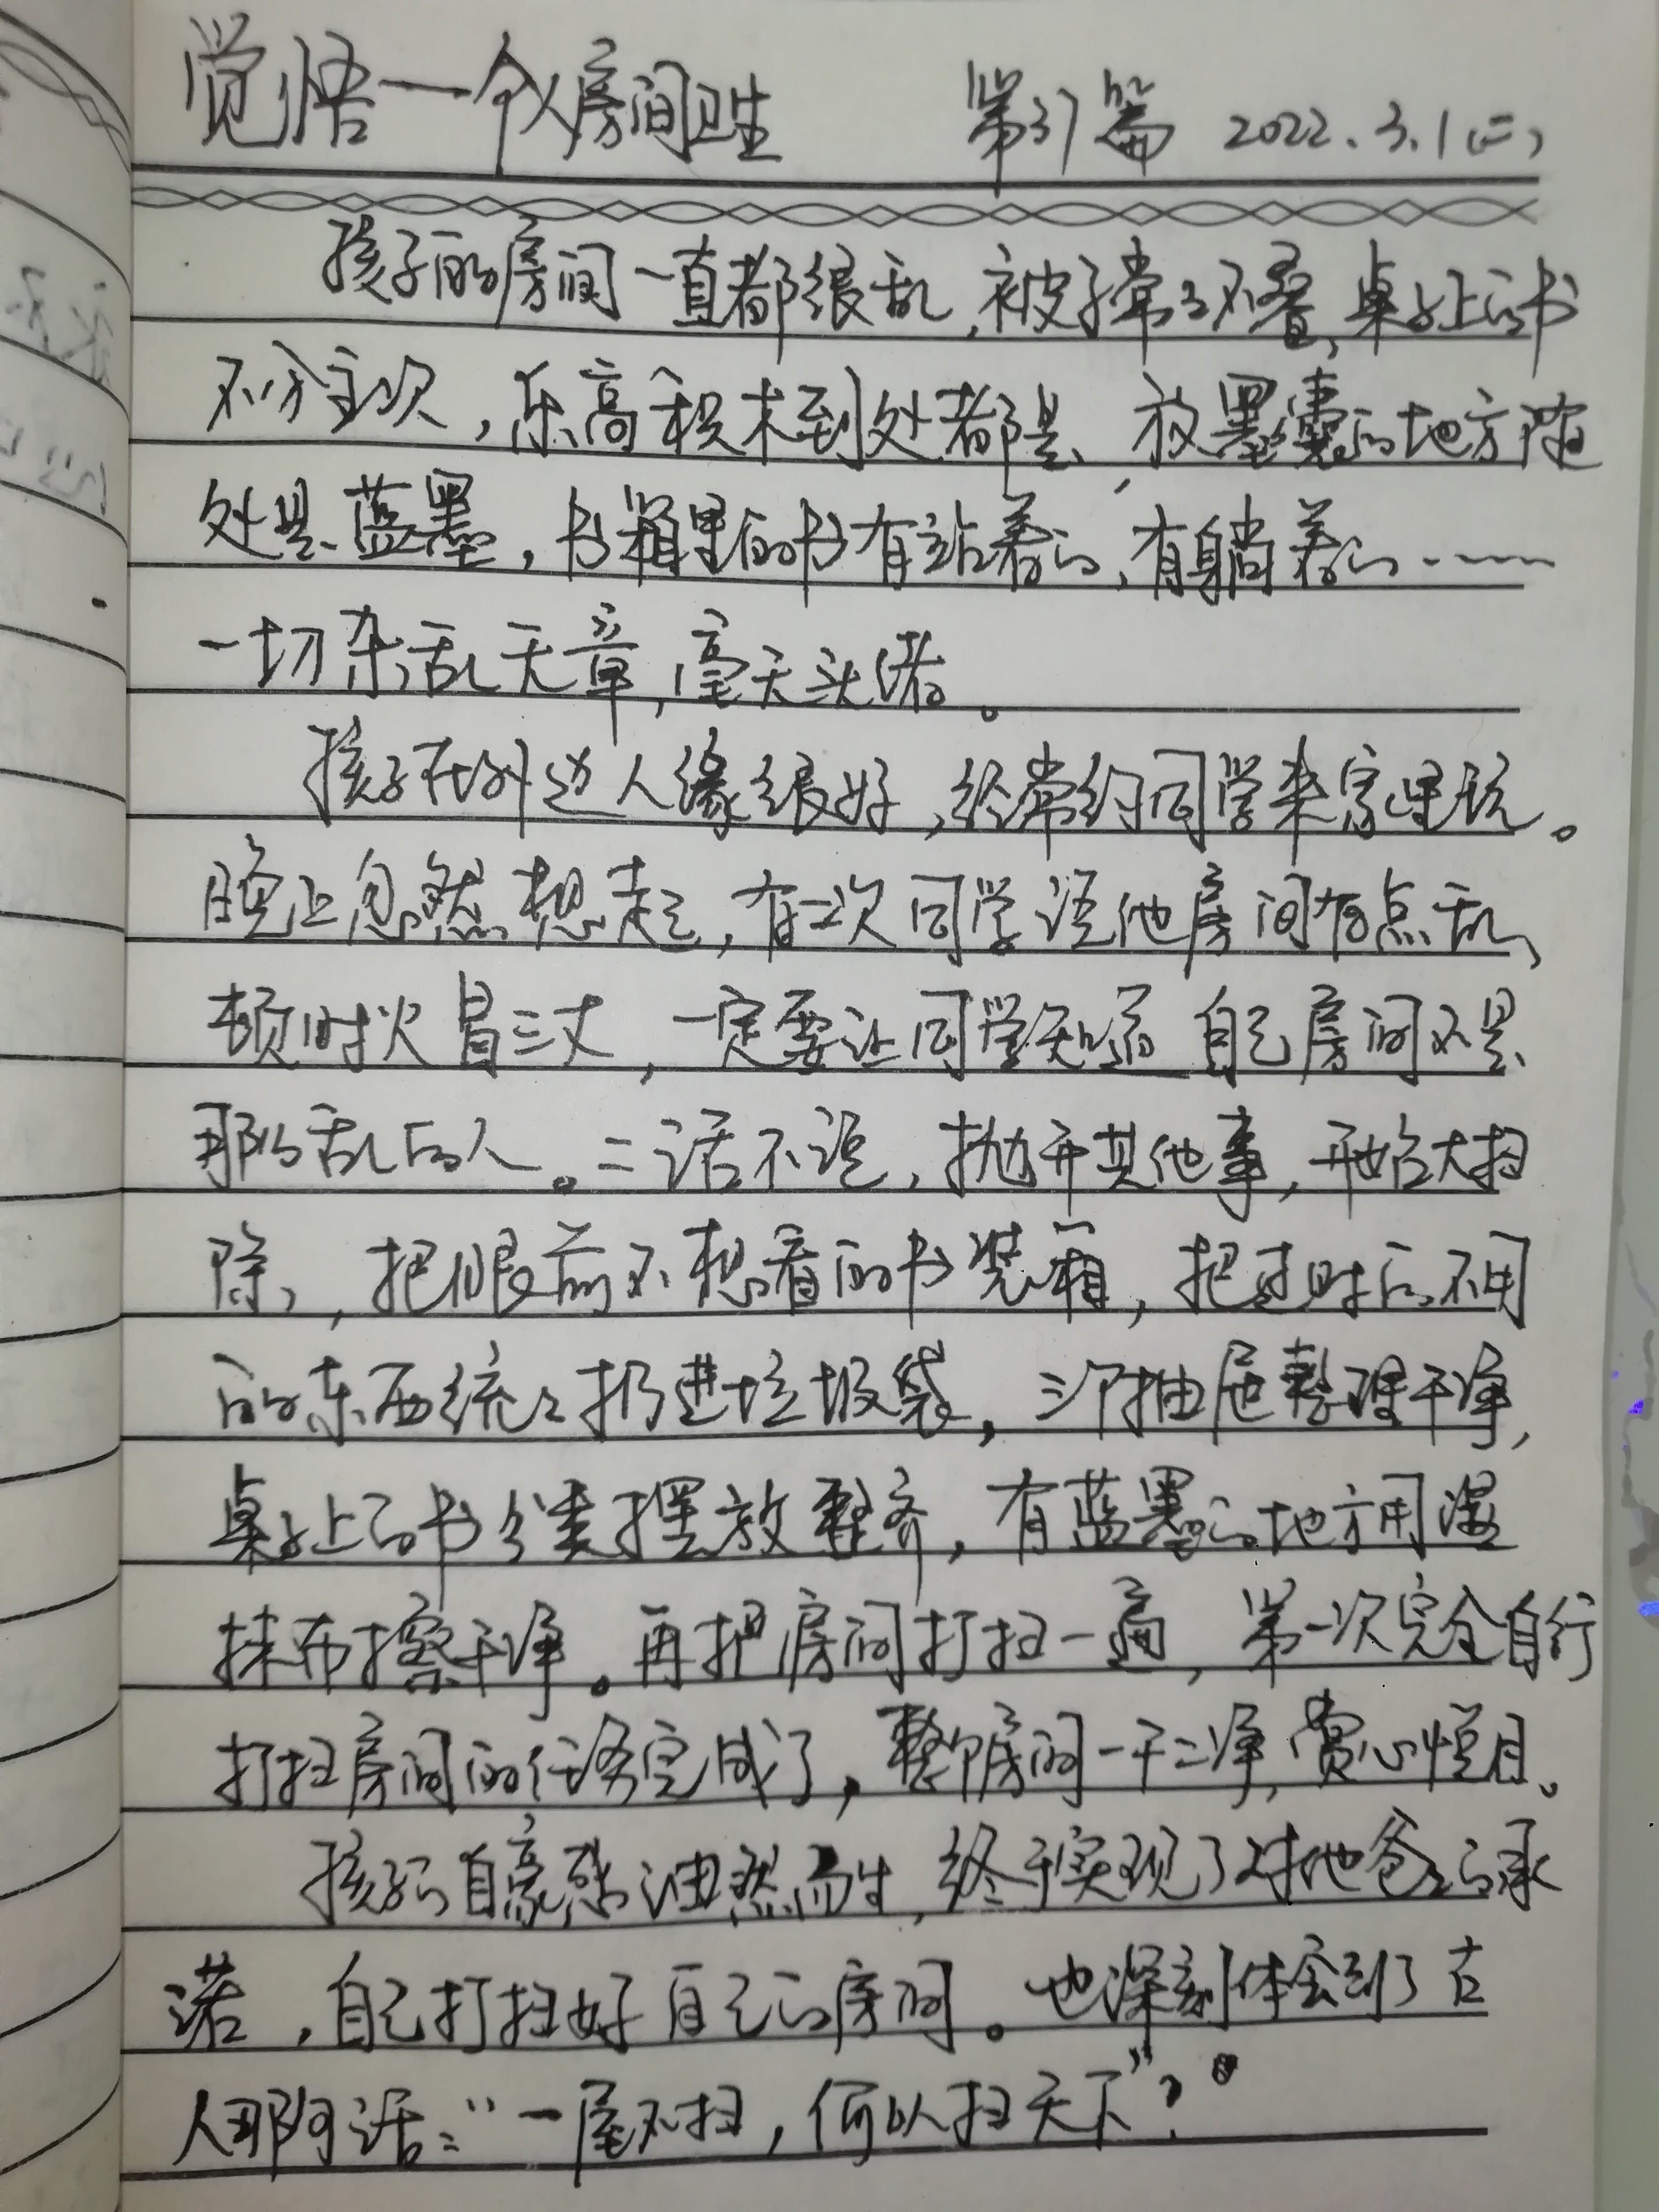 觉悟一个人房间卫生 第37篇 2022.3.1(二)
孩子的房间一直都很乱,被子常常不叠,桌子上的书
不分主次,乐高积木到处都是,放墨囊的地方随
处是蓝墨,书箱里的书有站着的,有躺着的……
一切杂乱无章,毫无头绪。
孩子在外边人缘很好,经常约同学来家里玩。
晚上忽然想起,有一次同学说他房间有点乱,
顿时火冒三丈,一定要让同学知道自己房间不是
那么乱的人。二话不说,抛开其他事,开始大扫
除,把眼前不想看的书装箱,把过时的不用
的东西统统扔进垃圾袋,三个抽屉整理干净,
桌子上的书分类摆放整齐,有蓝墨的地方用湿
抹布擦干净。再把房间打扫一遍,第一次完全自行
打扫房间的任务完成了,整个房间一干二净,赏心悦目。
孩子的自豪感油然而生,终于实现了对他爸爸的承
诺,自己打扫好自己的房间。也深刻体会到了古
人那句话:“一屋不扫,何以扫天下”?